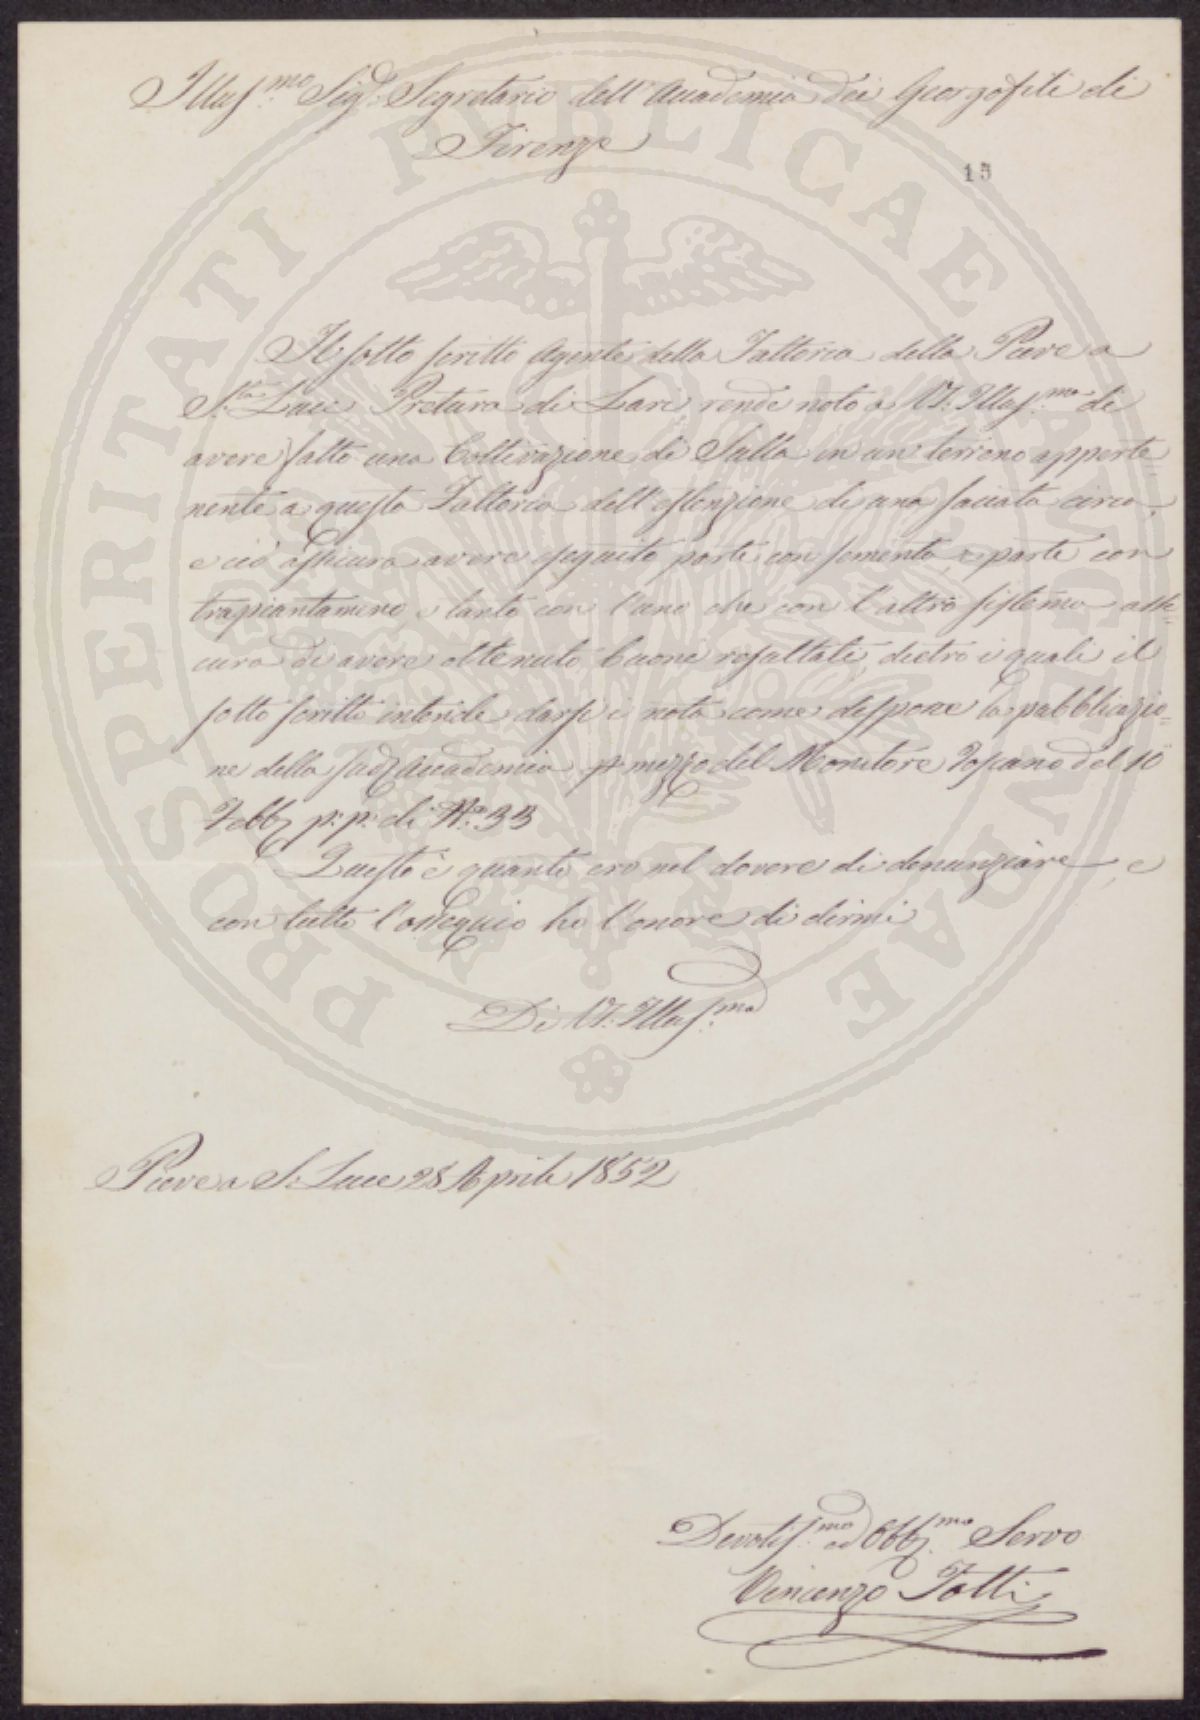 Illus.mo Sig.r Segretario dell'Accademia dei Georgofili di
Firenze
15
Il sotto scritto Agente della Fattoria della Pieve a
S.ta Luce Pretura di Lari rende noto a V.S. Illus.ma di
avere fatto una Coltivazione di Sulla in un terreno apparte=
nente a questa Fattoria dell'estenzione di una saccata circa,
e ciò assicura avere eseguito parte con sementa, e parte con
trapiantamene e tanto con l'uno che con l'altro sistema assi=
cura di avere ottenuto buoni resultati, dietro i quali il
sotto scritto intende darsi in nota come dispone la pubblicazio=
ne della sud.a Accademia p mezzo del Monitore Toscano del 10
Febb. p:p: di N.o 33
Questo è quanto ero nel dovere di denunziare, e
con tutto l'ossequio ho l'onore di dirmi
Di V.S. Illus.ma
Pieve a S. Luce 28 Aprile 1852
Devotis.mo ed Obb.mo Servo
Vincenzo Totti
PROSPERITATI PUBLICAE AUGENDAE